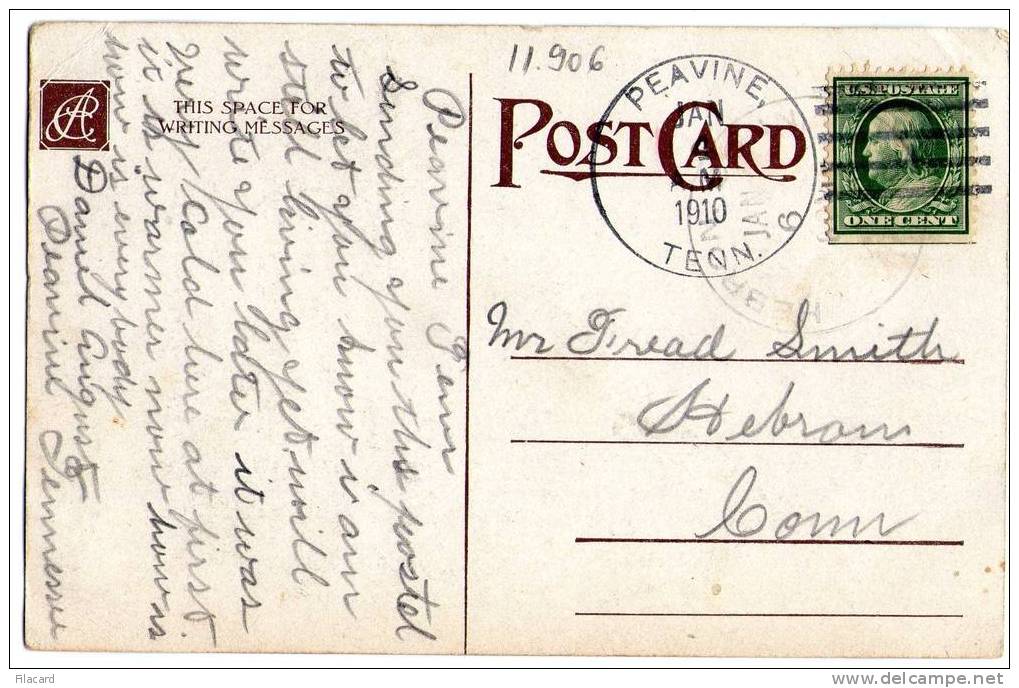 THIS SPACE FOR
WRITING MESSAGES
Peavine Tenn
Sending you this postel
to let you know i am
still living yet will
write you later it was
very cold here at first
it is warmer now hows
how is every body
Daniel August
Peavine Tennessee
11.906
POST CARD
PEAVINE,
JAN
1910
TENN.
HEBRON
JAN
6
U.S. POSTAGE
ONE CENT
Mr Fread Smith
Hebron
Conn
Filacard
www.delcampe.net